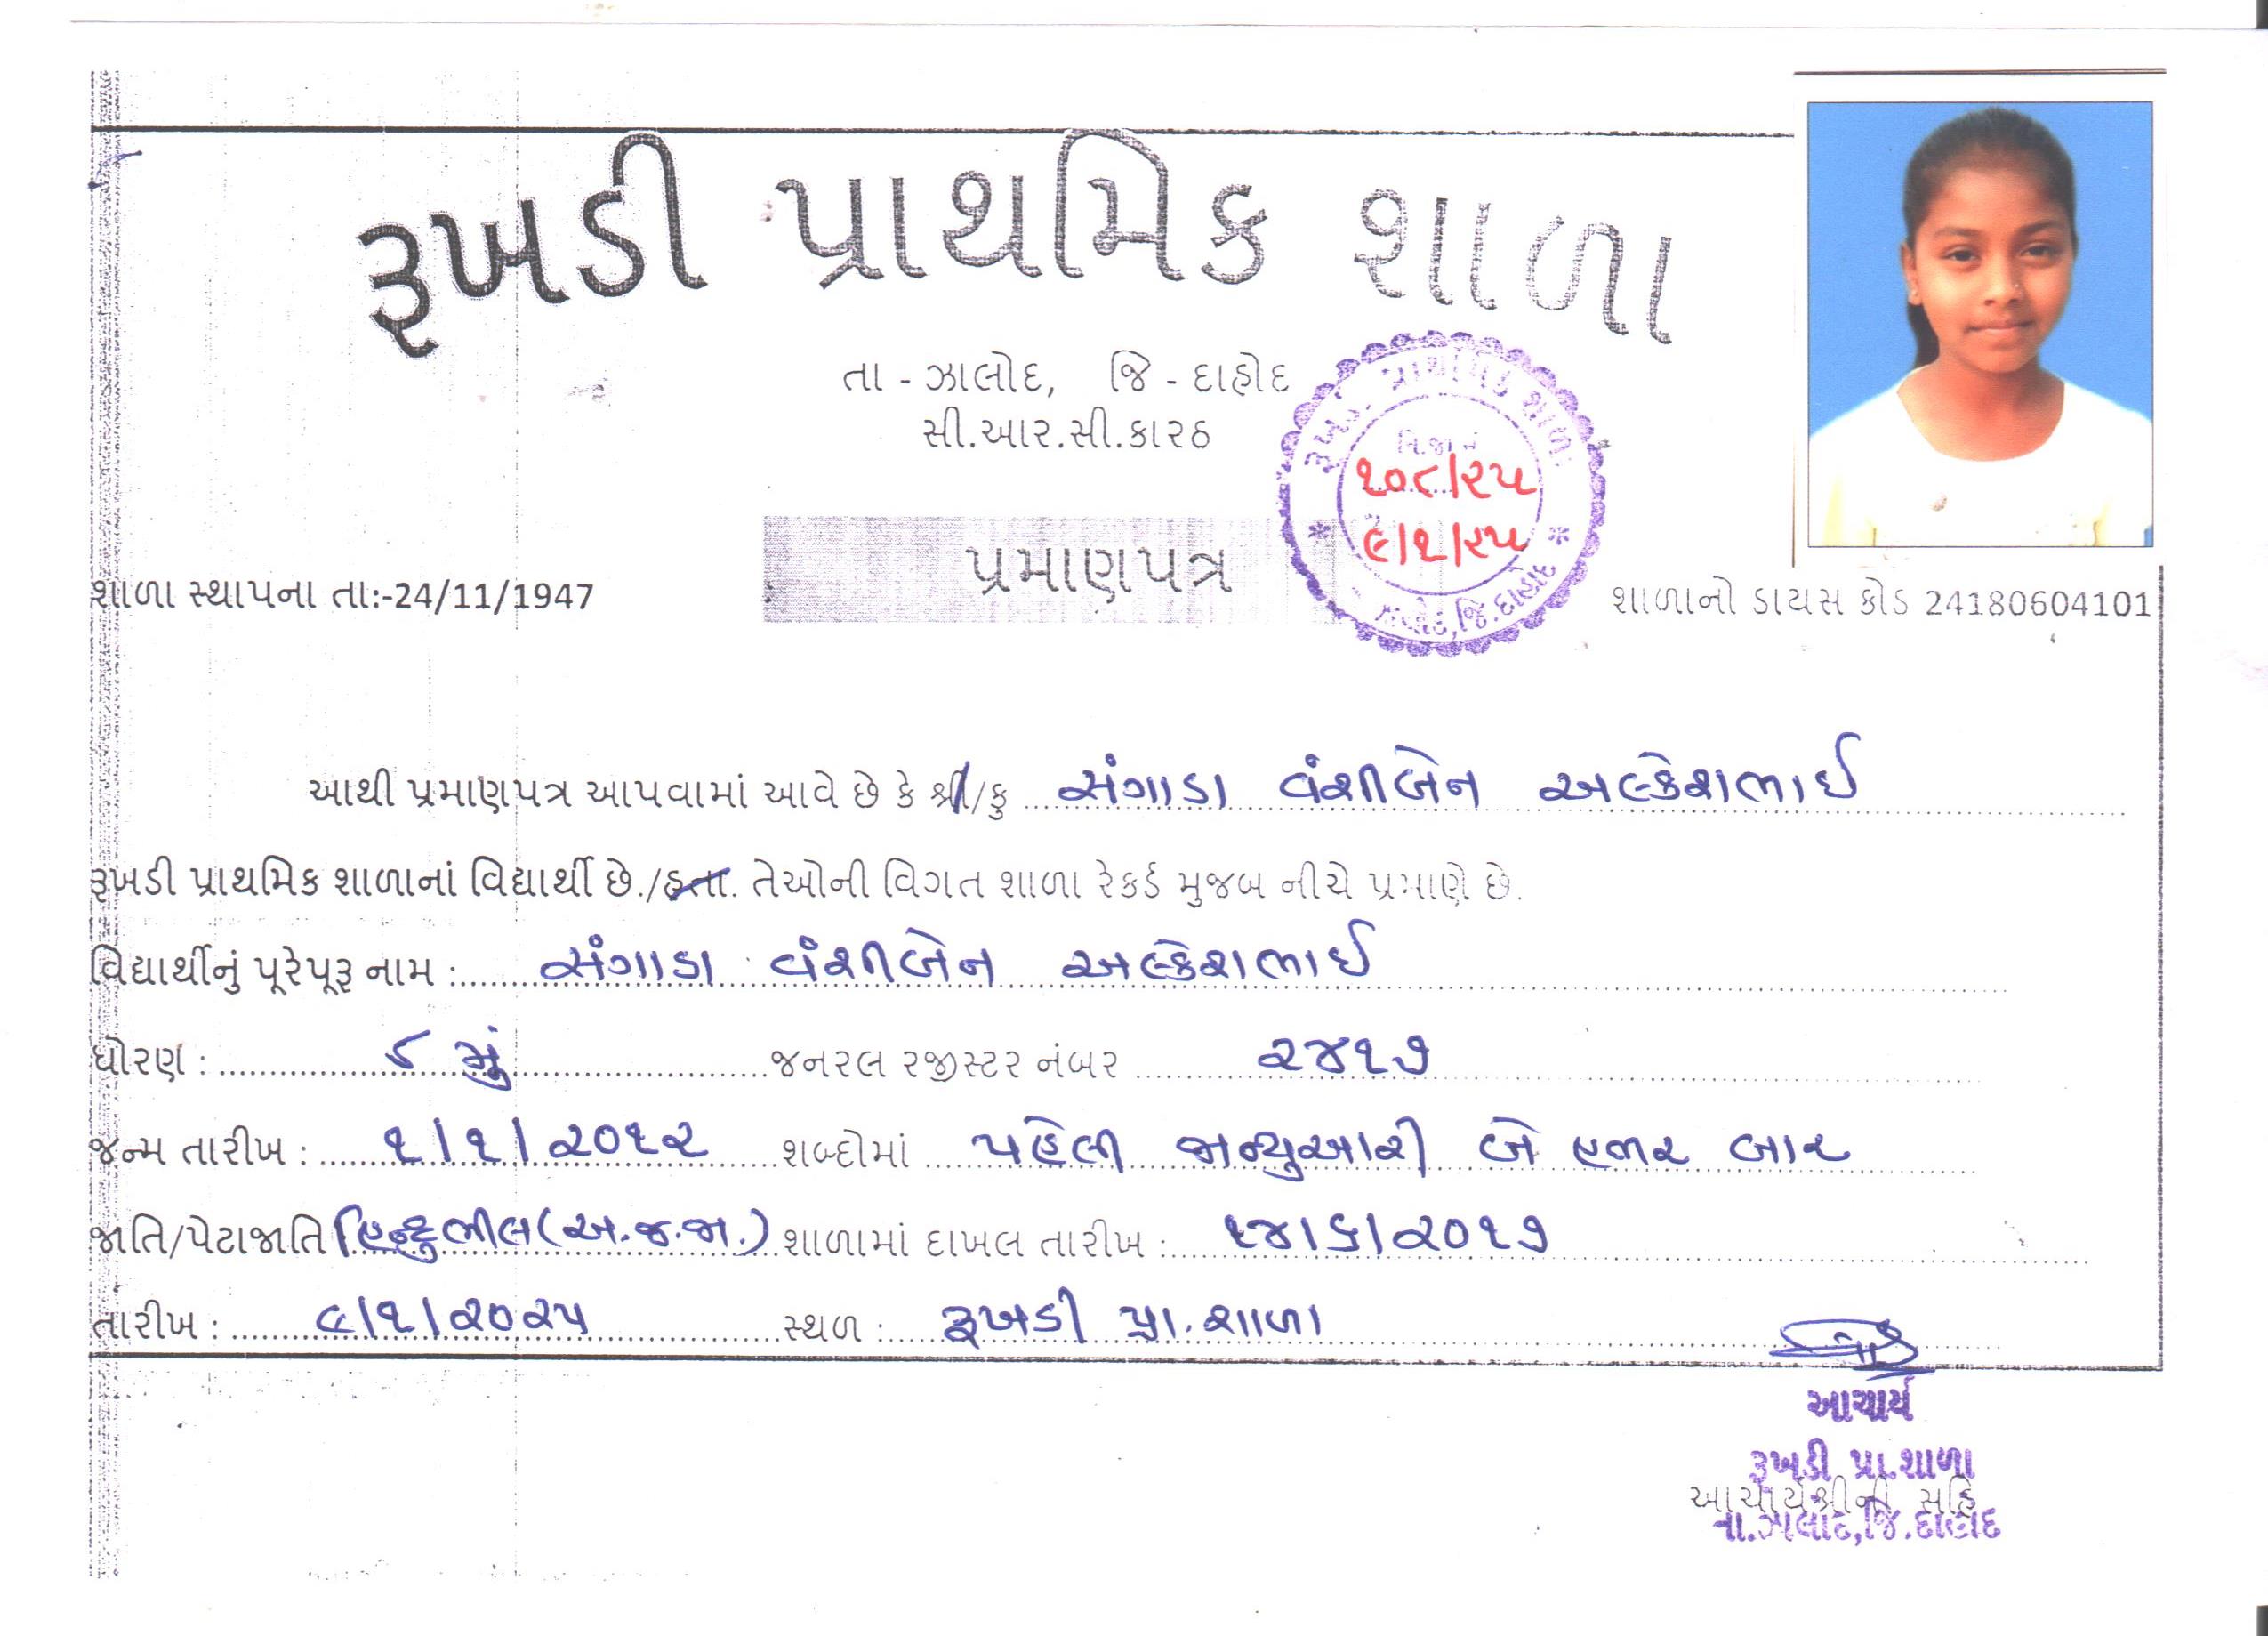 રૂખડી પ્રાથમિક શાળા
તા - ઝાલોદ, જિ - દાહોદ
સી.આર.સી.કારઠ
રૂખડી પ્રાથમિક શાળા
વિ.જા.નં
૧૦૮/૨૫
૯/૧/૨૫
જિ.દાહોદ
પ્રમાણપત્ર
શાળા સ્થાપના તા:-24/11/1947
શાળાનો ડાયસ કોડ 24180604101
આથી પ્રમાણપત્ર આપવામાં આવે છે કે શ્રી/કુ સંગાડા વંશીબેન અલ્કેશભાઈ
રૂખડી પ્રાથમિક શાળાનાં વિદ્યાર્થી છે./હતા. તેઓની વિગત શાળા રેકર્ડ મુજબ નીચે પ્રમાણે છે.
વિદ્યાર્થીનું પૂરેપૂરૂ નામ : સંગાડા વંશીબેન અલ્કેશભાઈ
ધોરણ : મું જનરલ રજીસ્ટર નંબર ૨૪૧૭
જન્મ તારીખ : ૧/૧/૨૦૧૨ શબ્દોમાં પહેલી જાન્યુઆરી બે હજાર બાર
જાતિ/પેટાજાતિ હિન્દુ ભીલ (અ.જ.જા.) શાળામાં દાખલ તારીખ : ૧૪/૬/૨૦૧૭
તારીખ : ૯/૧/૨૦૨૫ સ્થળ : રૂખડી પ્રા.શાળા
આચાર્ય
રૂખડી પ્રા.શાળા
આચાર્યશ્રીની સહિ
તા.ઝાલોદ,જિ.દાહોદ